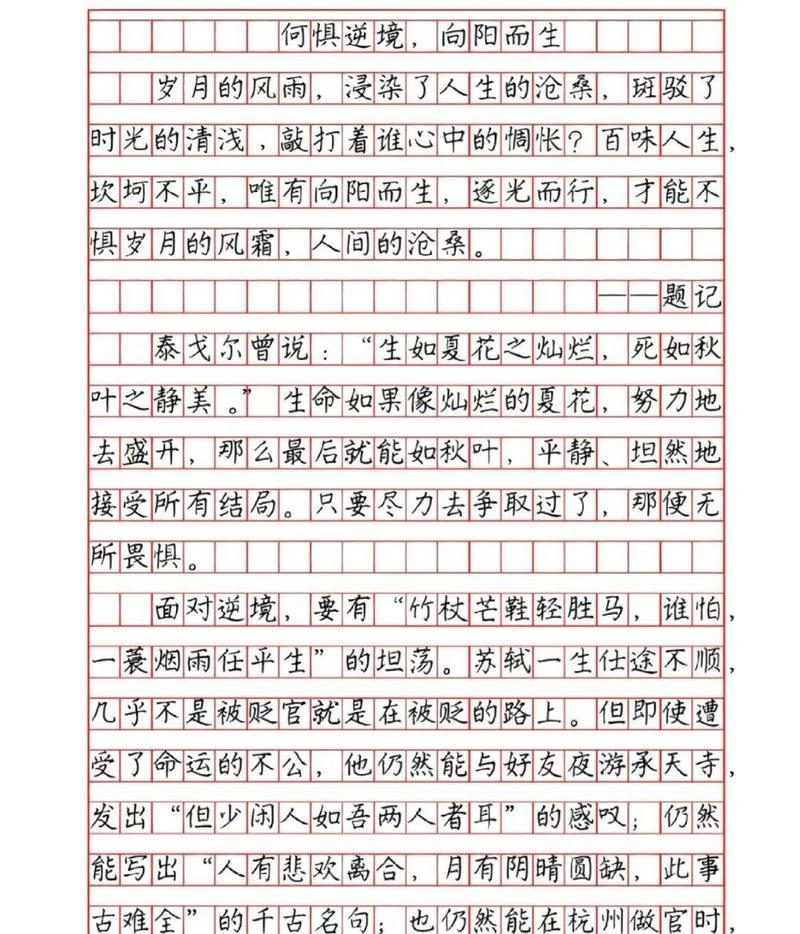 何惧逆境，向阳而生
岁月的风雨，浸染了人生的沧桑，斑驳了
时光的清浅，敲打着谁心中的惆怅？百味人生，
坎坷不平，唯有向阳而生，逐光而行，才能不
惧岁月的风霜，人间的沧桑。
——题记
泰戈尔曾说：“生如夏花之灿烂，死如秋
叶之静美。”生命如果像灿烂的夏花，努力地
去盛开，那么最后就能如秋叶，平静、坦然地
接受所有结局。只要尽力去争取过了，那便无
所畏惧。
面对逆境，要有“竹杖芒鞋轻胜马，谁怕，
一蓑烟雨任平生”的坦荡。苏轼一生仕途不顺，
几乎不是被贬官就是在被贬的路上。但即使遭
受了命运的不公，他仍然能与好友夜游承天寺，
发出“但少闲人如吾两人者耳”的感叹；仍然
能写出“人有悲欢离合，月有阴晴圆缺，此事
古难全”的千古名句；也仍然能在杭州做官时，